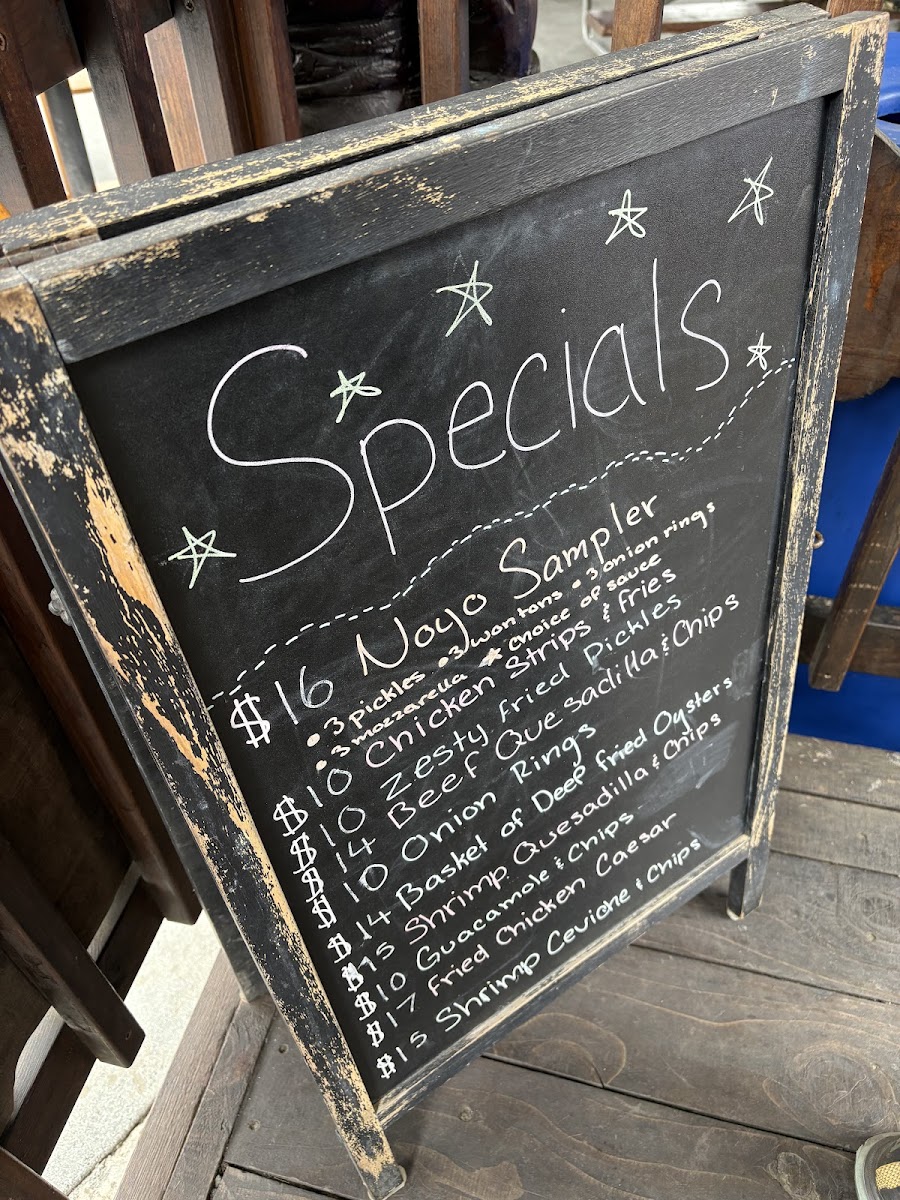 Specials
$16 Noyo Sampler
• 3 pickles • 3 wontons • 3 onion rings
• 3 mozzarella ★ choice of sauce
$10 Chicken Strips & fries
$10 Zesty fried Pickles
$14 Beef Quesadilla & Chips
$10 Onion Rings
$14 Basket of Deep fried Oysters
$15 Shrimp Quesadilla & Chips
$10 Guacamole & Chips
$17 Fried Chicken Caesar
$15 Shrimp Ceviche & Chips